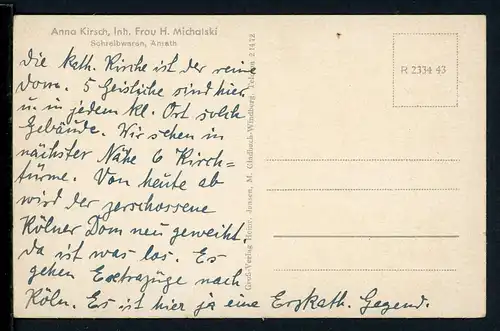 Anna Kirsch, Inh. Frau H. Michalski
Schreibwaren, Anrath
die kath. Kirche ist der reine
Dom. 5 Geistliche sind hier
u. in jedem kl. Ort solch
Gebäude. Wir sehen in
nächster Nähe 6 Kirch=
türme. Von heute ab
wird der zerschossene
Kölner Dom neu geweiht,
da ist was los. Es
gehen Extrazüge nach
Köln. Es ist hier ja eine Erzkath. Gegend.
Groß-Verlag Heinr. Jansen, M. Gladbach-Windberg, Telefon 21472
R 2334 43